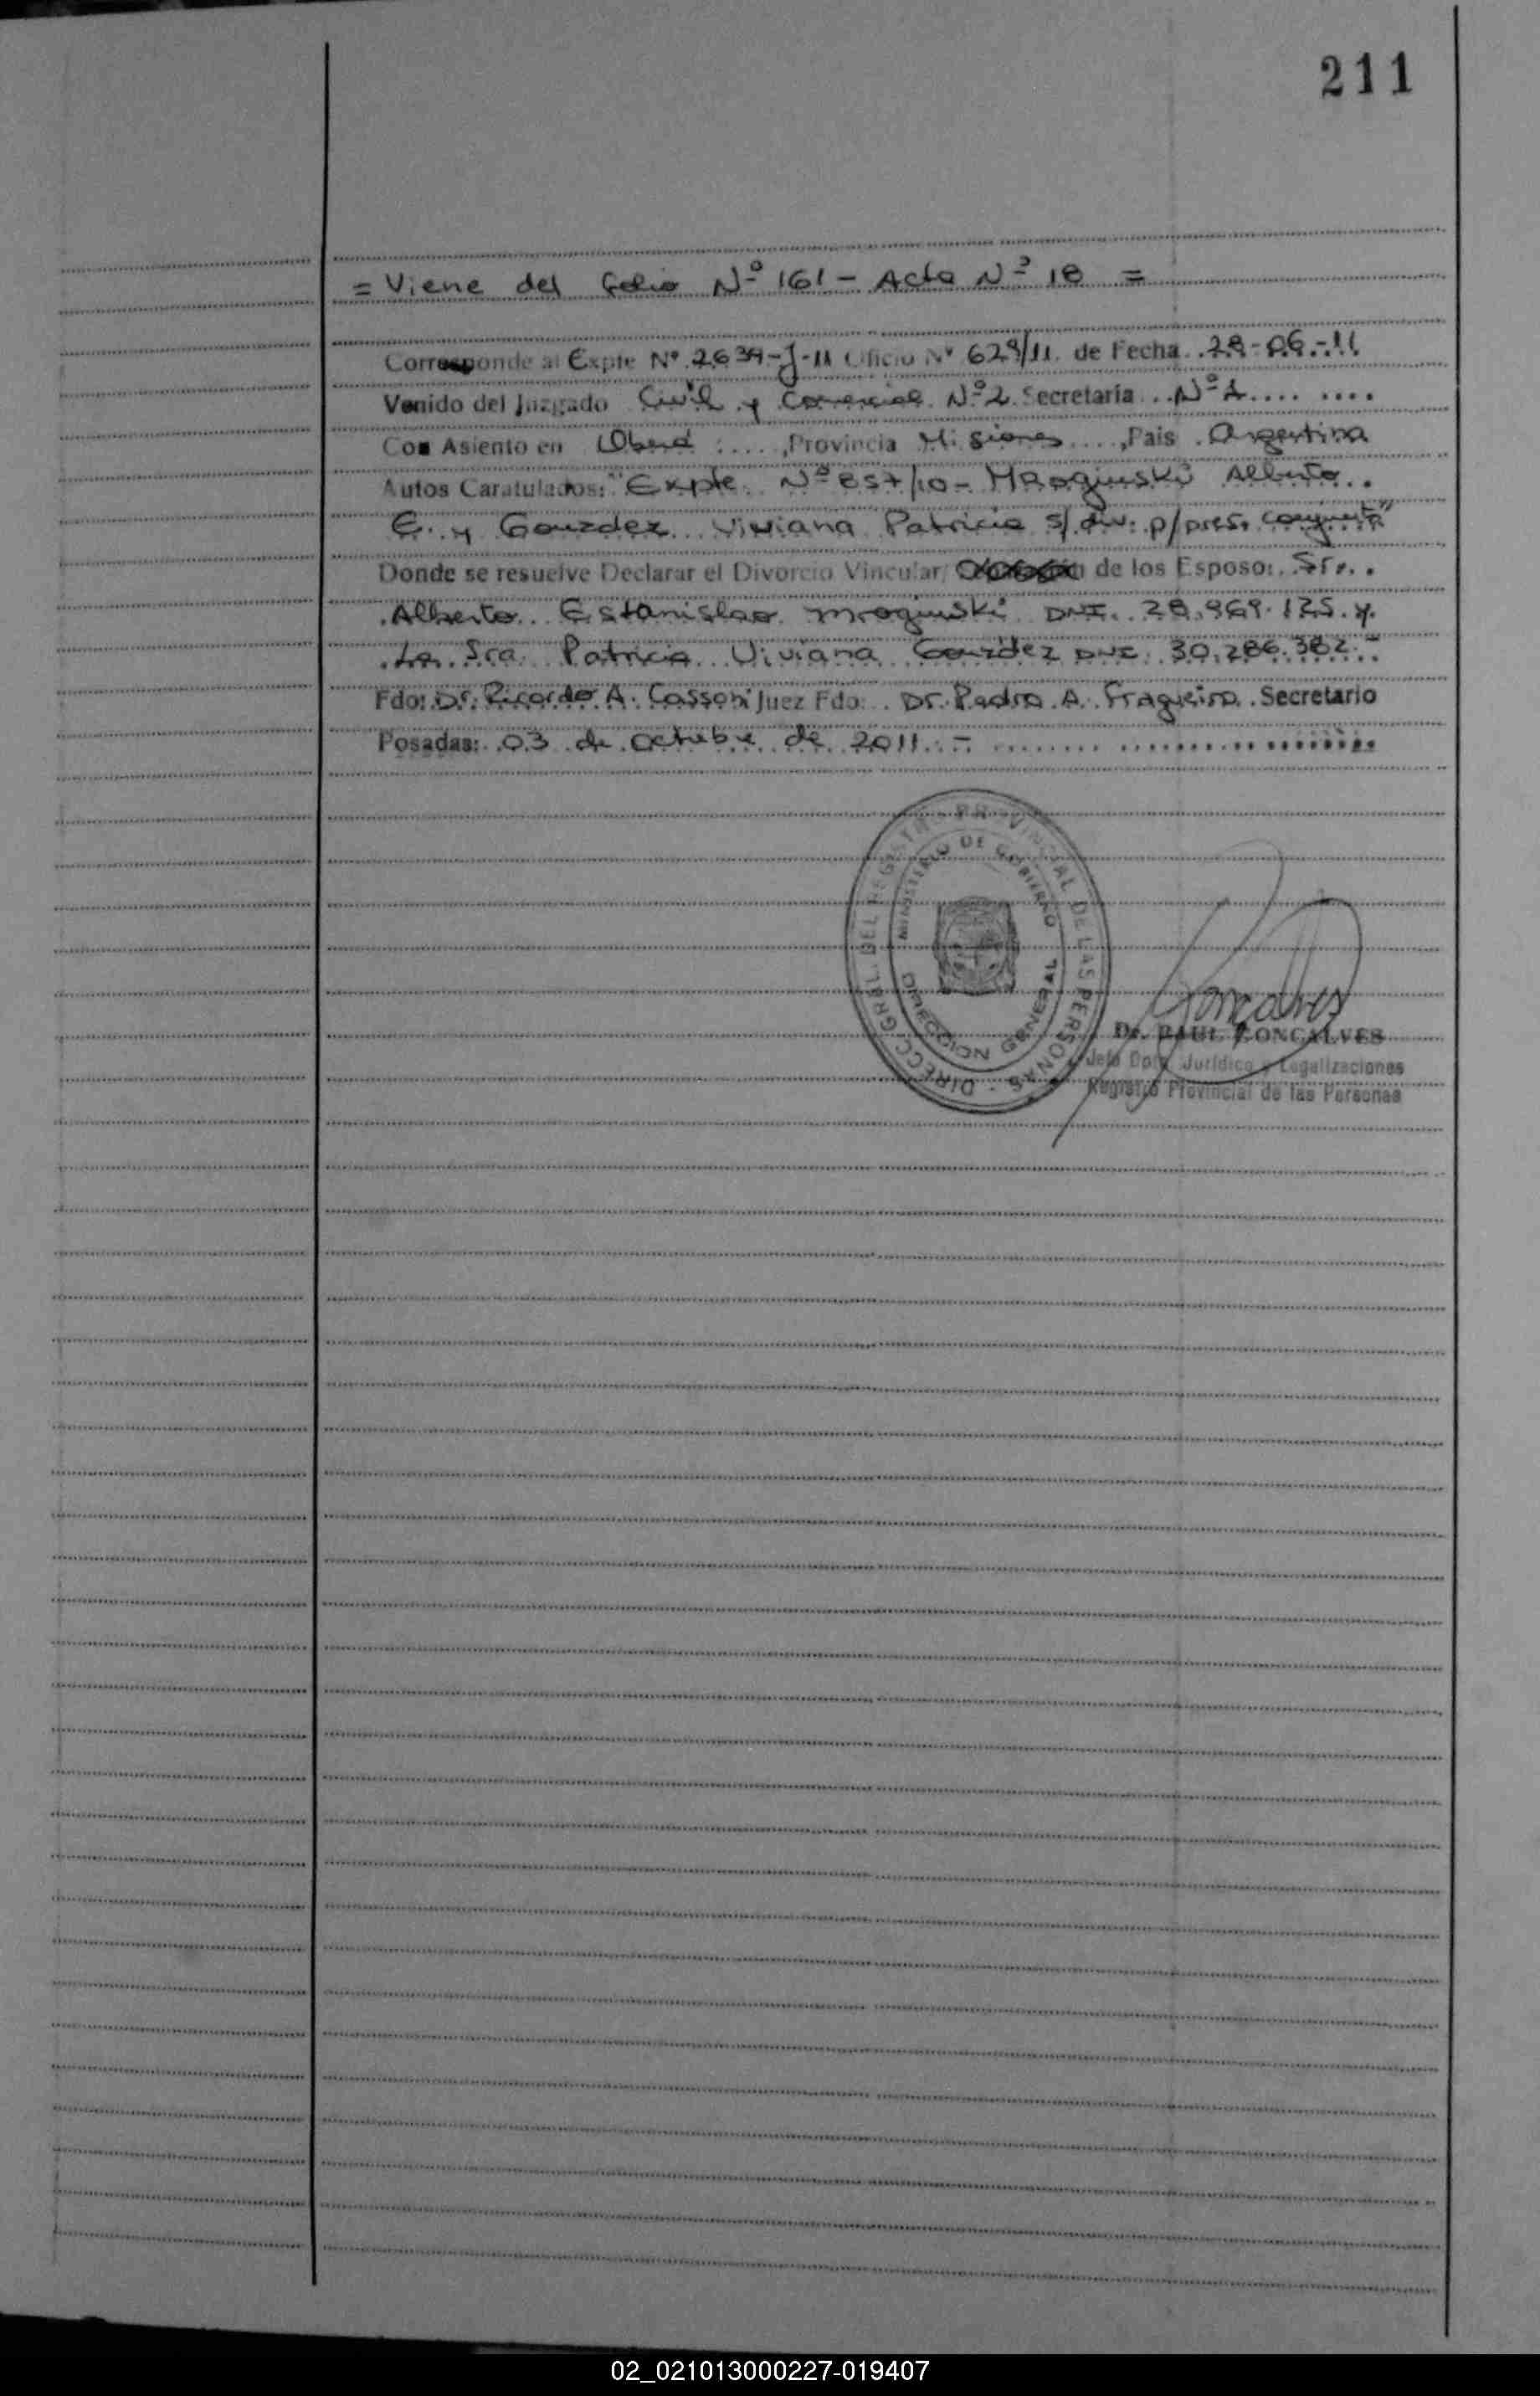 211
= Viene del folio Nº 161 - Acta Nº 18 =
Corresponde al Expte Nº 2634-J-11 Oficio Nº 629/11. de Fecha 28-06-11
Venido del Juzgado Civil y Comercial Nº 2 Secretaría Nº 1
Con Asiento en Oberá, Provincia Misiones, País Argentina
Autos Caratulados: "Expte. Nº 857/10 - Mroginski Alberto
E. y González Viviana Patricia s/ div. p/ pres. conjunta"
Donde se resuelve Declarar el Divorcio Vincular/ de los Esposo: Sr.
Alberto Estanislao Mroginski DNI. 28.969.125 y
La Sra. Patricia Viviana González DNI. 30.286.382.-
Fdo: Dr. Ricardo A. Cassoni Juez Fdo: Dr. Pedro A. Fragueiro. Secretario
Posadas: 03 de Octubre de 2011.-
DIRECC. GRAL. DEL REGISTRO PROVINCIAL DE LAS PERSONAS -
MINISTERIO DE GOBIERNO
DIRECCION GENERAL
Dr. RAUL GONCALVES
Jefe Dpto. Jurídico y Legalizaciones
Registro Provincial de las Personas
02_021013000227-019407